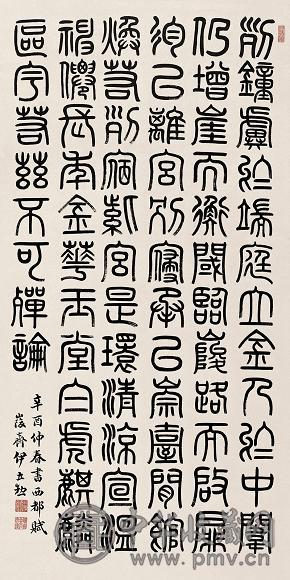 列鐘虡於端庭立金人於中闈
仍增崖而衡閾臨峻路而啟扉
徇以離宮別寢承以崇臺閒館
煥若列宿紫宮是環清涼宣溫
神僊長年金華玉堂白虎麒麟
區宇若茲不可殫論
辛酉仲春書西都賦
峻齋伊立勳
中华收藏网
www.pmv.cn